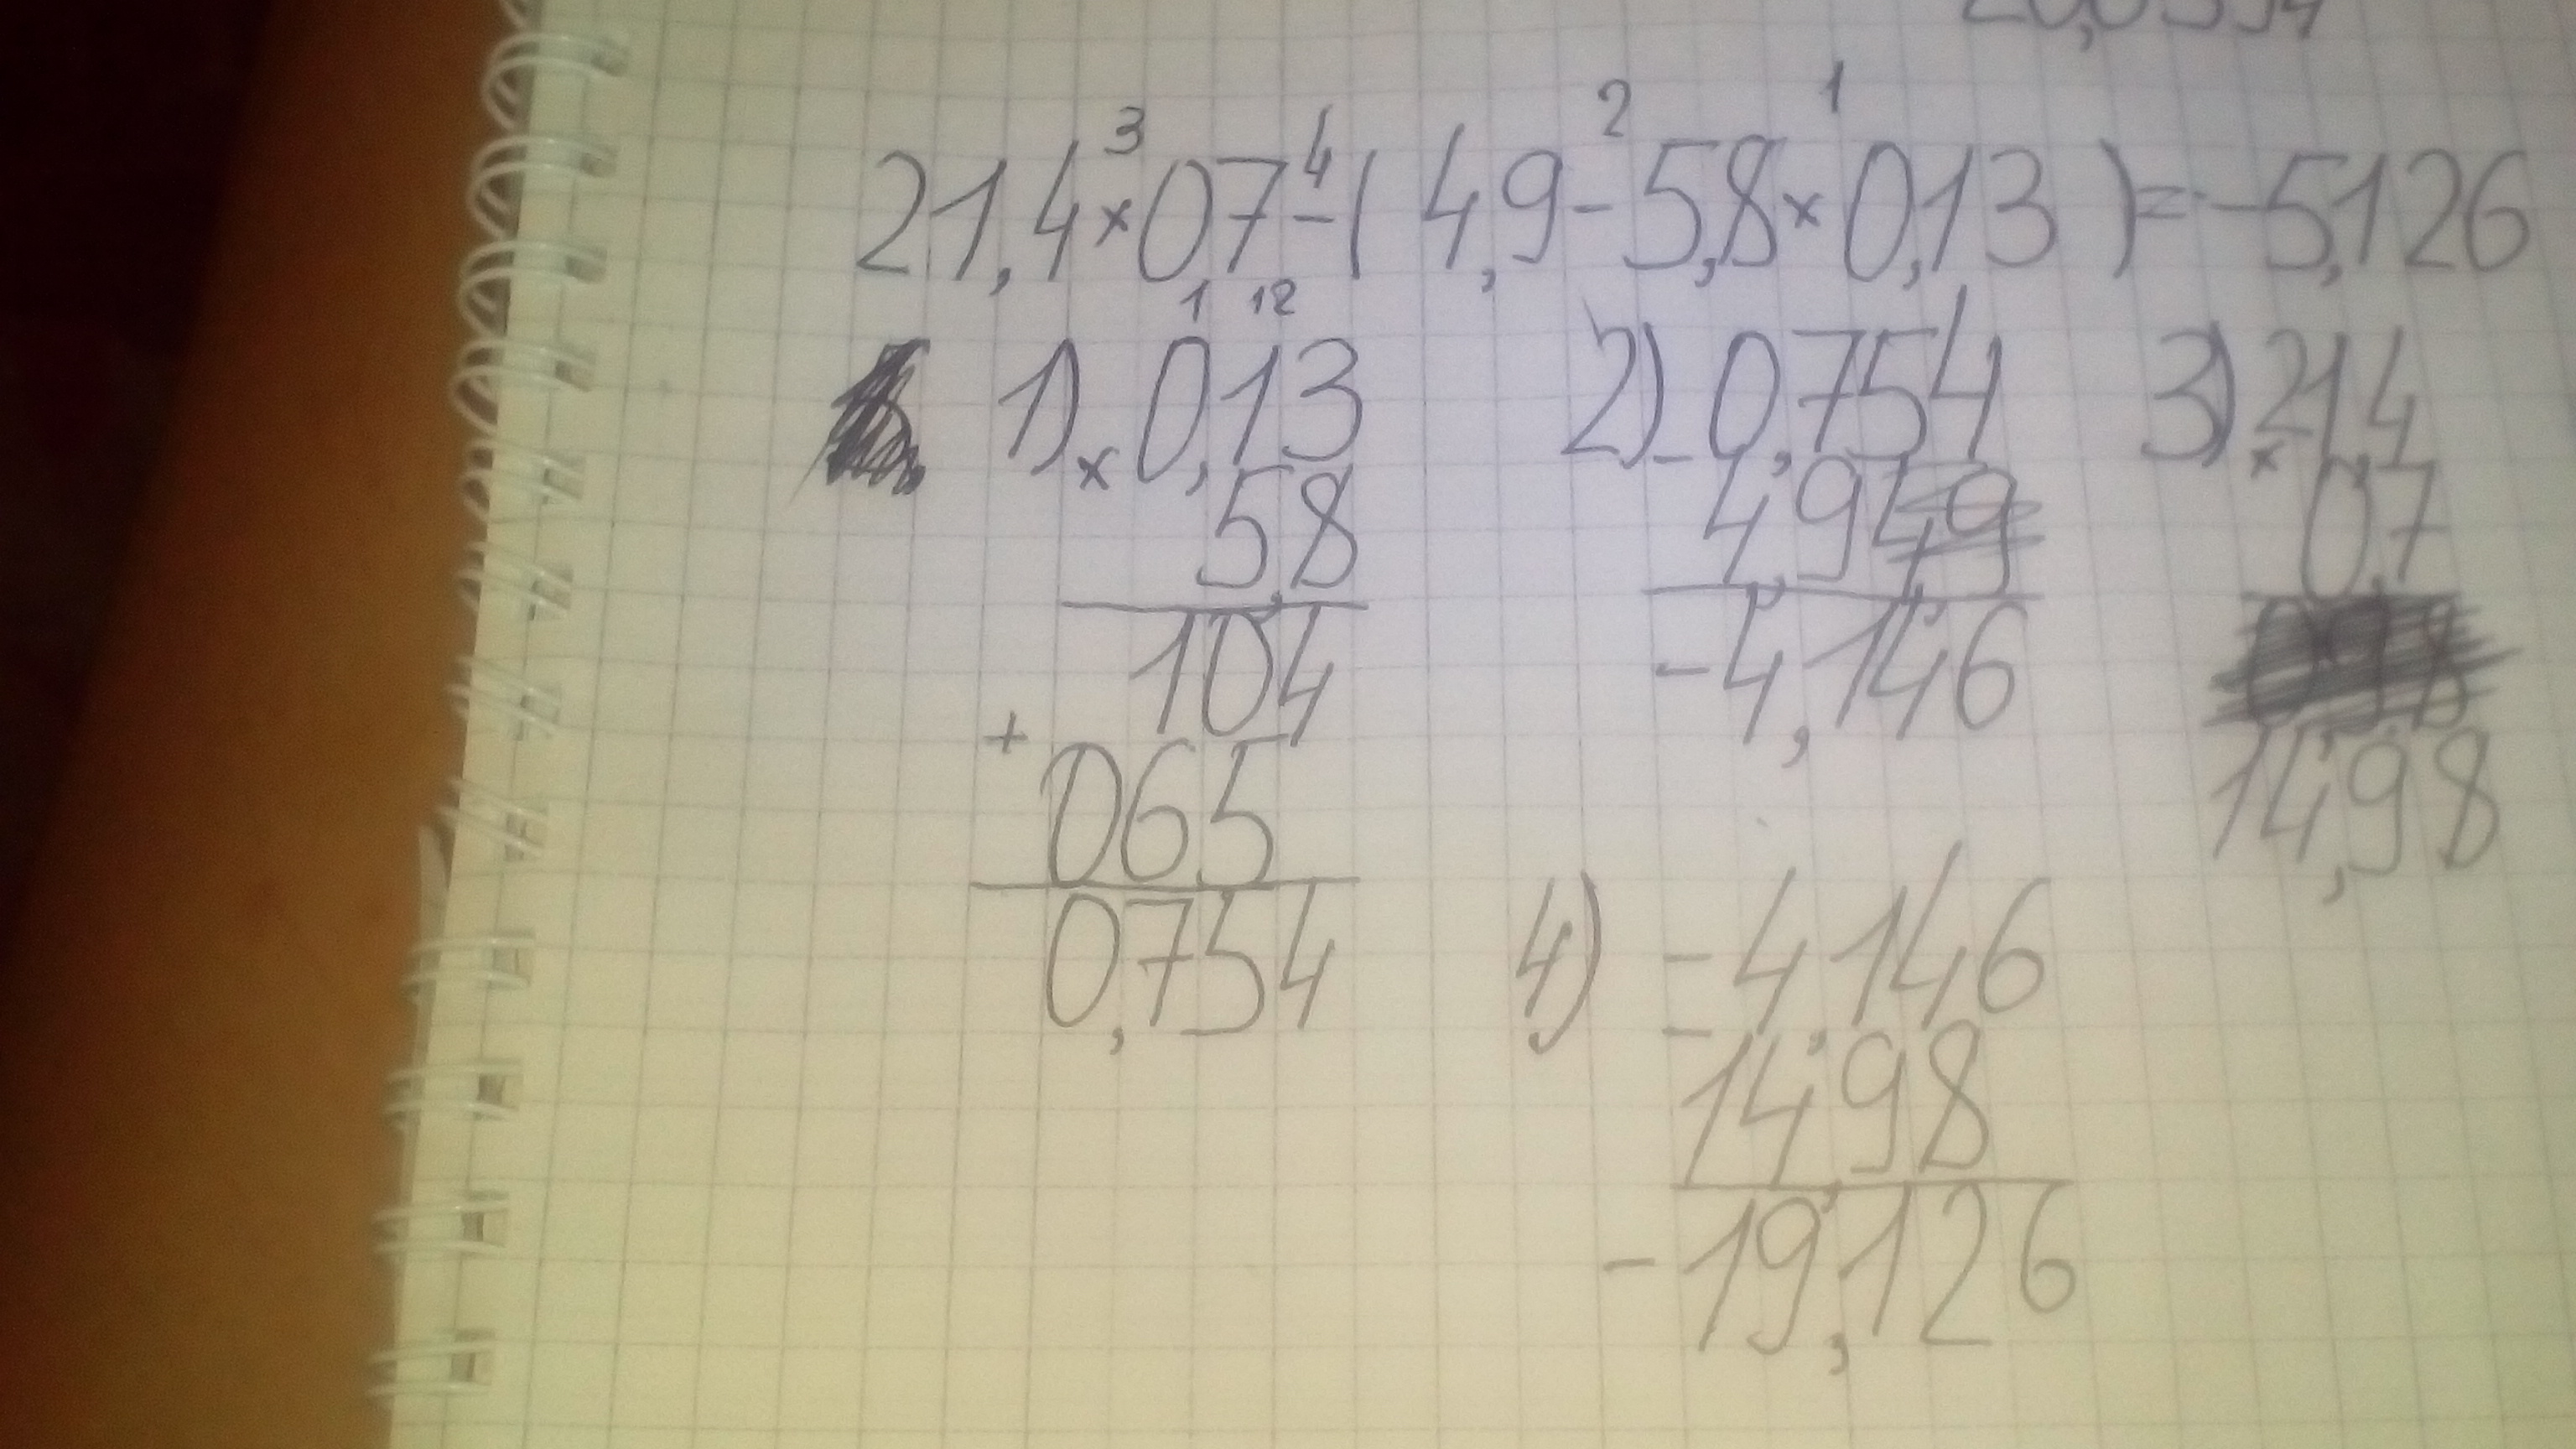 3 4 2 1
21,4×07-(4,9-5,8×0,13)=-5,126
1 12
1) × 0,13
5,8
104
+ 065
0,754
2) - 0,754
4,9
-4,146
3) × 21,4
0,7
14,98
4) - -4,146
14,98
-19,126